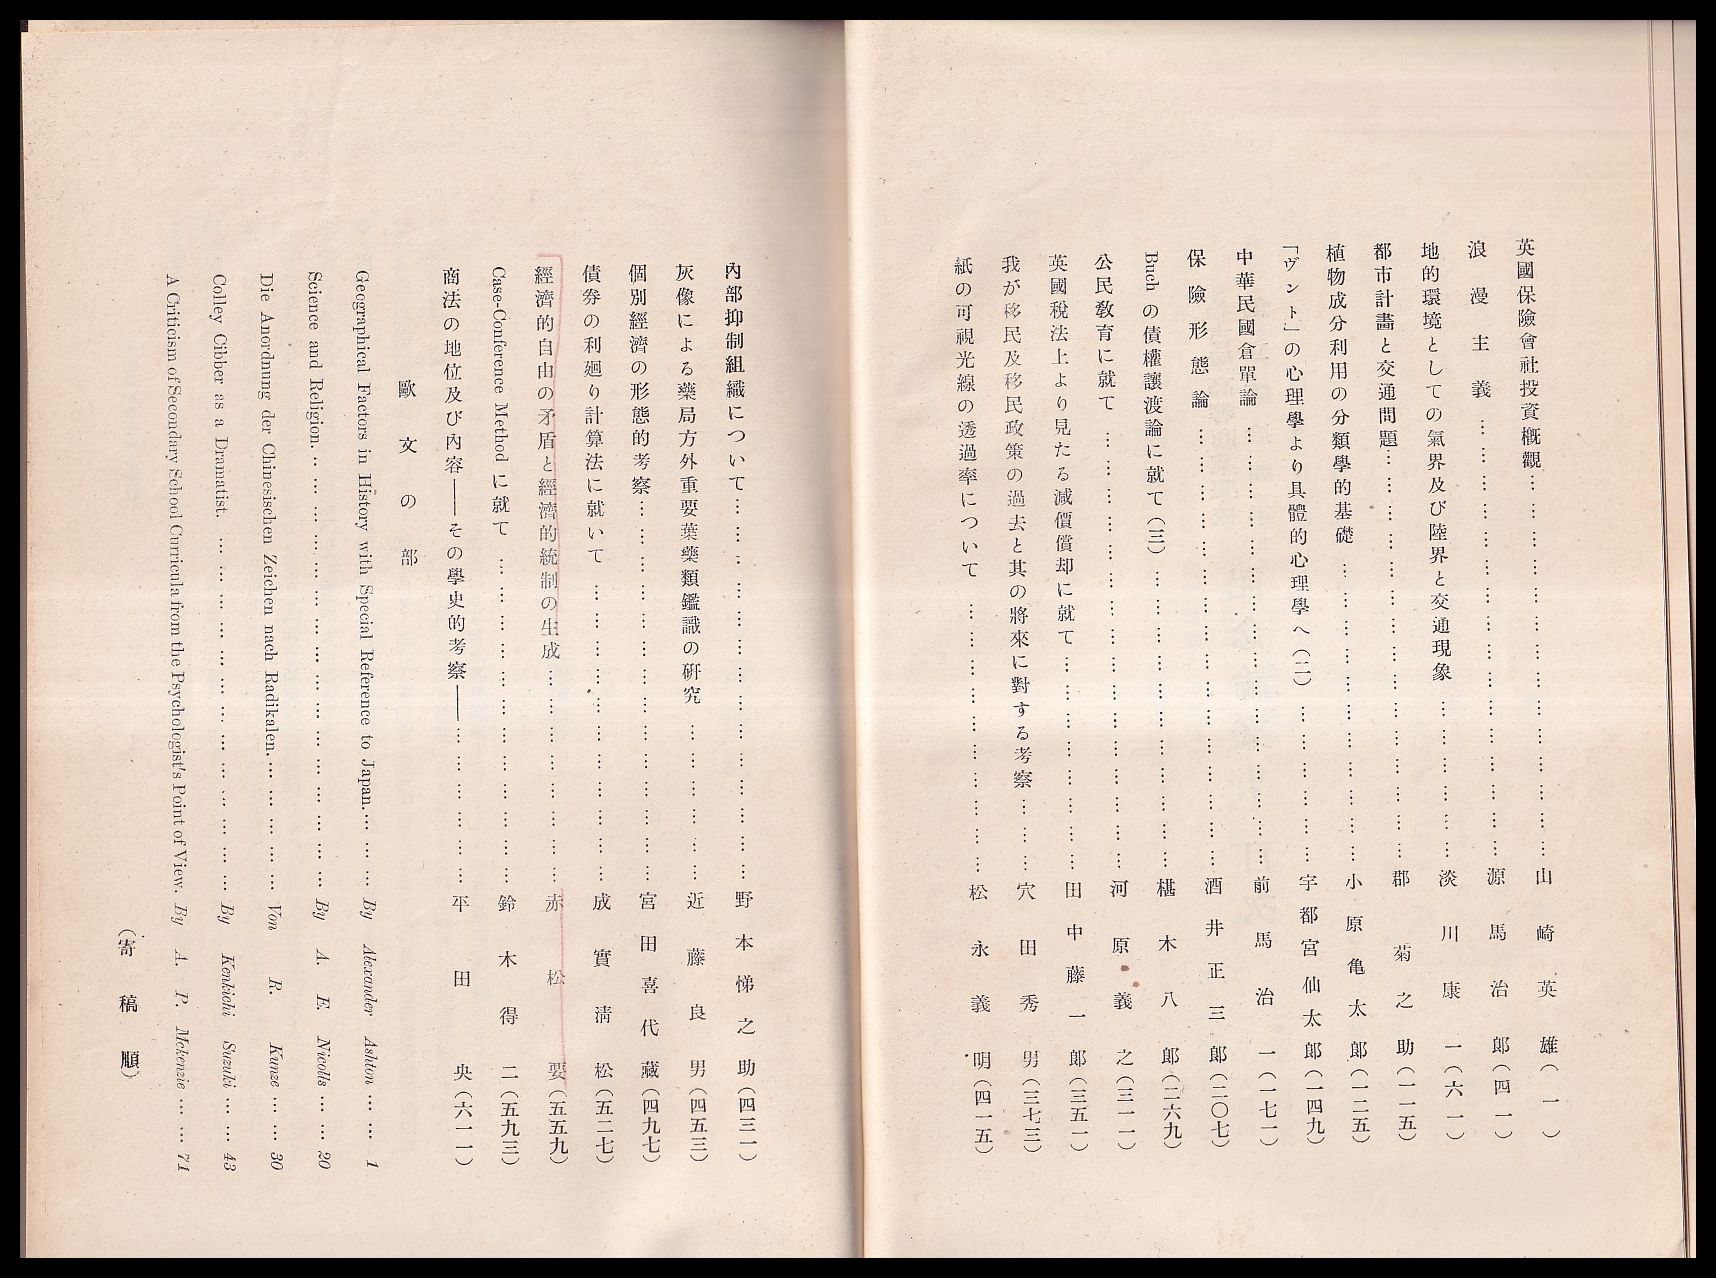 英國保險會社投資槪觀……………………………………山崎英雄(一)
浪漫主義……………………………………源馬治郎(四一)
地的環境としての氣界及び陸界と交通現象………………淡川康一(六一)
都市計畫と交通問題……………………………………郡菊之助(一一五)
植物成分利用の分類學的基礎……………………………小原亀太郎(一二五)
「ヴント」の心理學より具體的心理學へ(二)………………宇都宮仙太郎(一四九)
中華民國倉單論……………………………………前馬治一(一七一)
保險形態論……………………………………酒井正三郎(二〇七)
Buch の債權讓渡論に就て(三)……………………………椹木八郎(二六九)
公民敎育に就て……………………………………河原義之(三一一)
英國稅法上より見たる減價償却に就て……………………田中藤一郎(三五一)
我が移民及移民政策の過去と其の將來に對する考察………穴田秀男(三七三)
紙の可視光線の透過率について…………………………松永義明(四一五)
內部抑制組織について……………………………………野本悌之助(四三一)
灰像による藥局方外重要葉藥類鑑識の硏究………………近藤良男(四五三)
個別經濟の形態的考察……………………………………宮田喜代藏(四九七)
債券の利廻り計算法に就いて……………………………成實淸松(五二七)
經濟的自由の矛盾と經濟的統制の生成……………………赤松要(五五九)
Case-Conference Method に就て……………………………鈴木得二(五九三)
商法の地位及び內容――その學史的考察――………………平田央(六一一)
歐文の部
Geographical Factors in History with Special Reference to Japan.……… By Alexander Ashton …… 1
Science and Religion.……………………………… By A. E. Nicolls …… 20
Die Anordnung der Chinesischen Zeichen nach Radikalen.……………… Von R. Kunze …… 30
Colley Cibber as a Dramatist.……………………………… By Kenkichi Suzuki …… 43
A Criticism of Secondary School Curricula from the Psychologist's Point of View. By A. P. Mckenzie …… 71
(寄稿順)